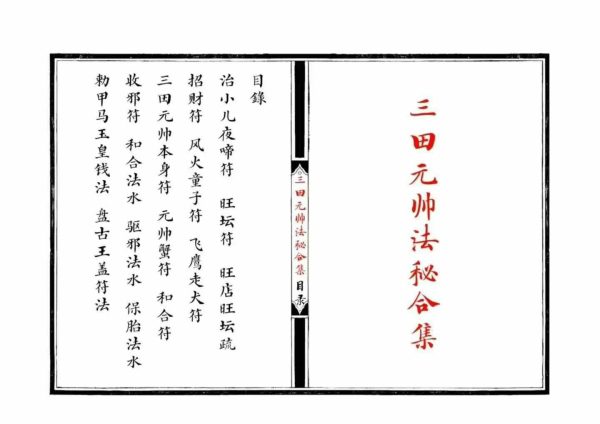 三田元帅法秘合集
三田元帅法秘合集 目录
目錄
治小儿夜啼符 旺坛符 旺店旺坛疏
招财符 风火童子符 飞鹰走犬符
三田元帅本身符 元帅蟹符 和合符
收邪符 和合法水 驱邪法水 保胎法水
勅甲马玉皇钱法 盘古王盖符法